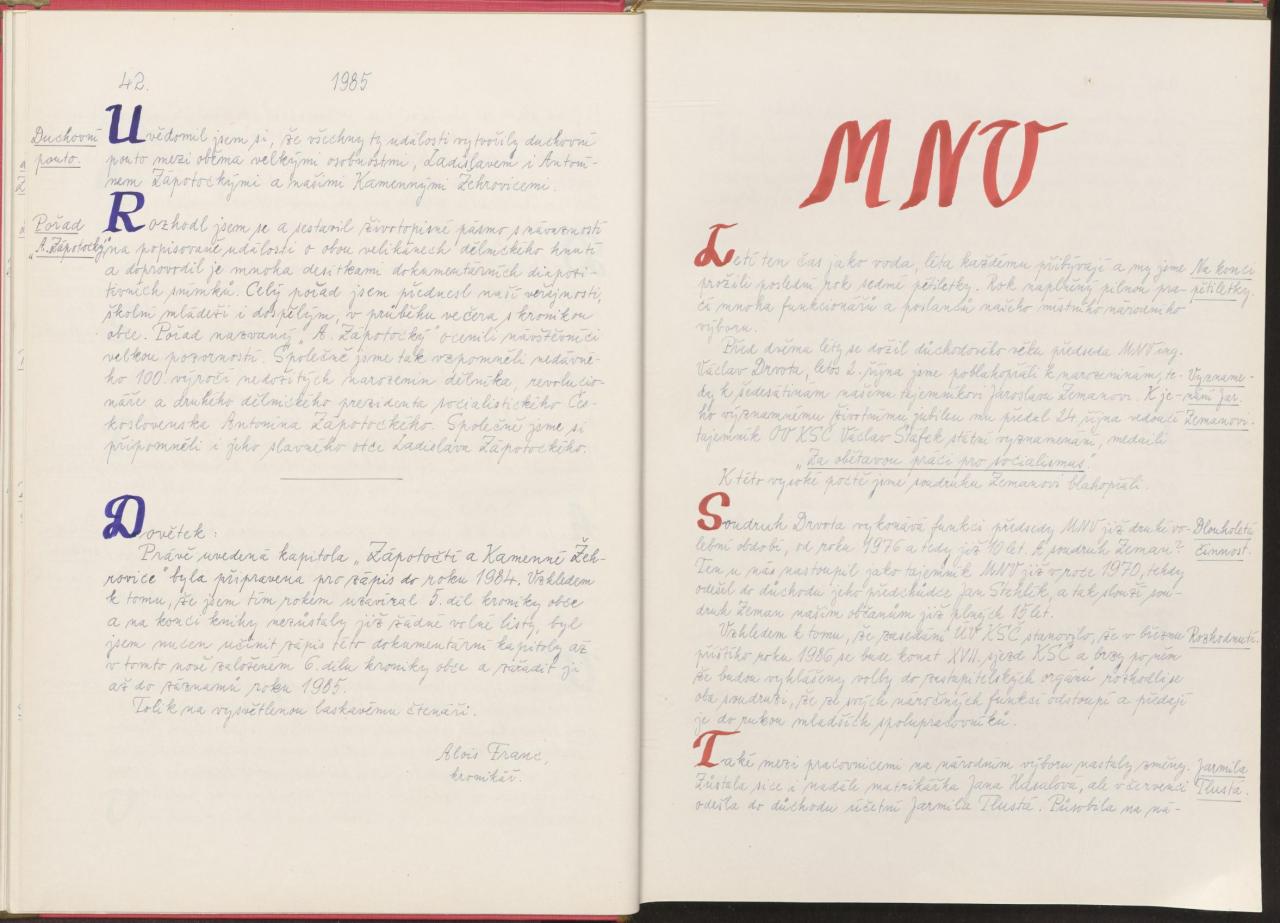 42. 1985
Duchovní
pouto.
Uvědomil jsem si, že všechny ty události vytvořily duchovní
pouto mezi oběma velkými osobnostmi, Ladislavem i Antoní-
nem Zápotockými a našimi Kamennými Žehrovicemi.
Pořad
„A. Zápotocký"
Rozhodl jsem se a sestavil životopisné pásmo s návazností
na popisované události o obou velikánech dělnického hnutí
a doprovodil je mnoha desítkami dokumentárních diapozi-
tivních snímků. Celý pořad jsem přednesl naší veřejnosti,
školní mládeži i dospělým, v průběhu večera s kronikou
obce. Pořad nazvaný „A. Zápotocký" ocenili návštěvníci
velkou pozorností. Společně jsme tak vzpomněli nedávné-
ho 100. výročí nedožitých narozenin dělníka, revolucio-
náře a druhého dělnického prezidenta socialistického Čes-
koslovenska Antonína Zápotockého. Společně jsme si
připomněli i jeho slavného otce Ladislava Zápotockého.
Dovětek:
Právě uvedená kapitola „Zápotočtí a Kamenné Žeh-
rovice" byla připravena pro zápis do roku 1984. Vzhledem
k tomu, že jsem tím rokem uzavíral 5. díl kroniky obce
a na konci knihy nezůstaly již žádné volné listy, byl
jsem nucen učinit zápis této dokumentární kapitoly až
v tomto nově založeném 6. dílu kroniky obce a zařadit ji
až do záznamů roku 1985.
Tolik na vysvětlenou laskavému čtenáři.
Alois Franc,
kronikář.
MNV
Letí ten čas jako voda, léta každému přibývají a my jsme
prožili poslední rok sedmé pětiletky. Rok naplněný pilnou pra-
cí mnoha funkcionářů a poslanců našeho místního národního
výboru.
Na konci
pětiletky.
Před dvěma léty se dožil důchodového věku předseda MNV ing.
Václav Drvota, letos 2. října jsme poblahopřáli k narozeninám, te-
dy k šedesátinám našemu tajemníkovi Jaroslavu Zemanovi. K je-
ho významnému životnímu jubileu mu předal 24. října vedoucí
tajemník OV KSČ Václav Šafek státní vyznamenání, medaili
„Za obětavou práci pro socialismus".
K této vysoké poctě jsme soudruhu Zemanovi blahopřáli.
Vyzname-
nání Jar.
Zemanovi.
Soudruh Drvota vykonává funkci předsedy MNV již druhé vo-
lební období, od roku 1976 a tedy již 10 let. A soudruh Zeman?
Ten u nás nastoupil jako tajemník MNV již v roce 1970, tehdy
odešel do důchodu jeho předchůdce Jan Stehlík, a tak slouží sou-
druh Zeman našim občanům již plných 15 let.
Dlouholetá
činnost.
Vzhledem k tomu, že zasedání ÚV KSČ stanovilo, že v březnu
příštího roku 1986 se bude konat XVII. sjezd KSČ a brzy po něm
že budou vyhlášeny volby do zastupitelských orgánů rozhodli se
oba soudruzi, že ze svých náročných funkcí odstoupí a předají
je do rukou mladších spolupracovníků.
Rozhodnutí.
Také mezi pracovnicemi na národním výboru nastaly změny.
Zůstala sice i nadále matrikářka Jana Hásalová, ale v červenci
odešla do důchodu účetní Jarmila Tlustá. Působila na ná-
Jarmila
Tlustá.